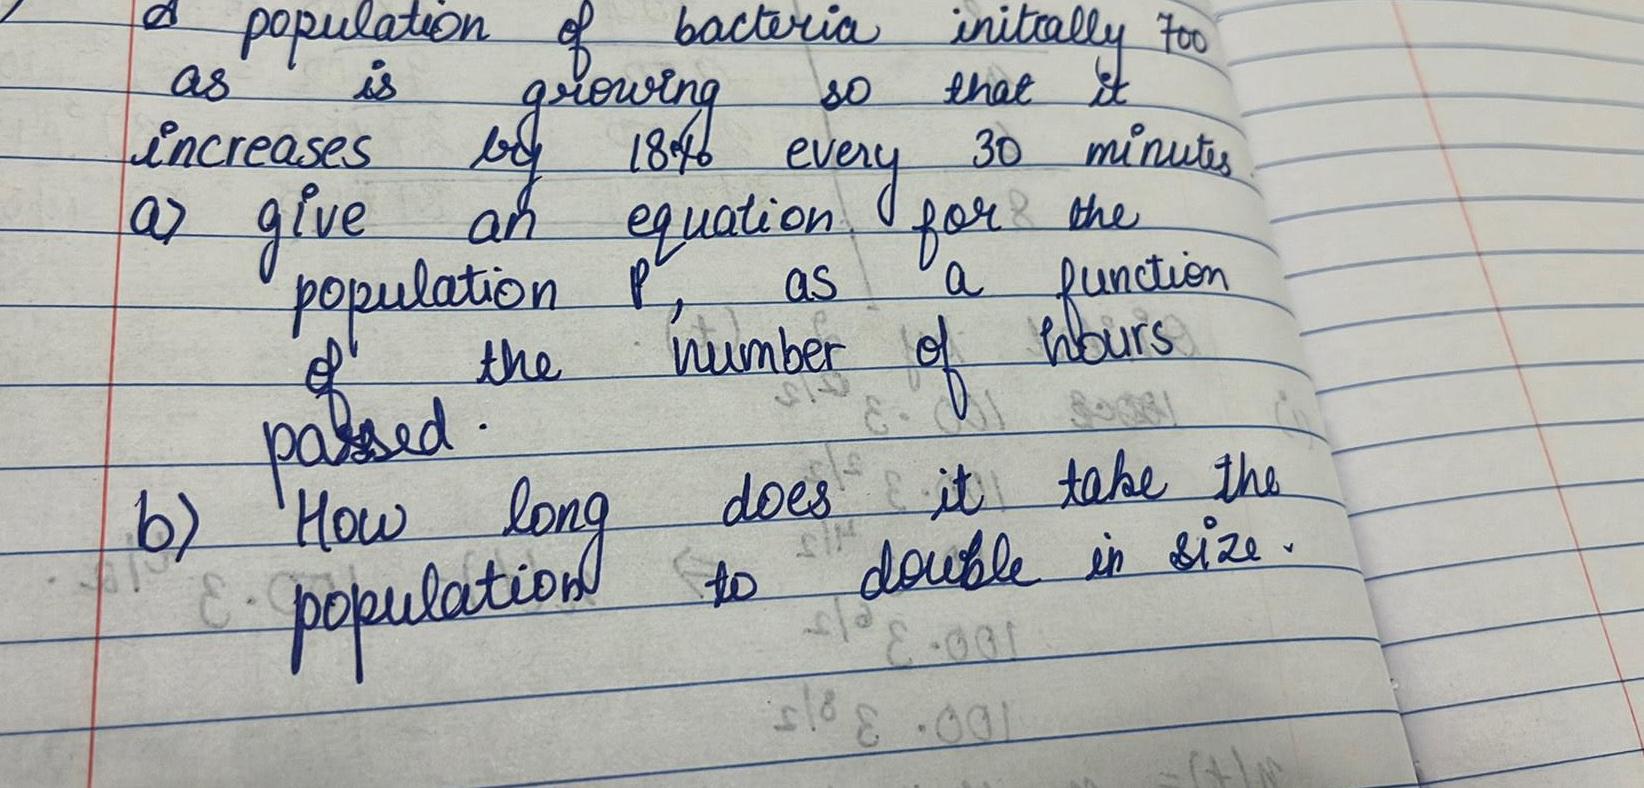 A population of bacteria initially 700
as is growing so that it
increases by 18% every 30 minutes
a) give an equation for the
population P, as a function
of the number of hours
passed.
b) How long does it take the
population to double in size.